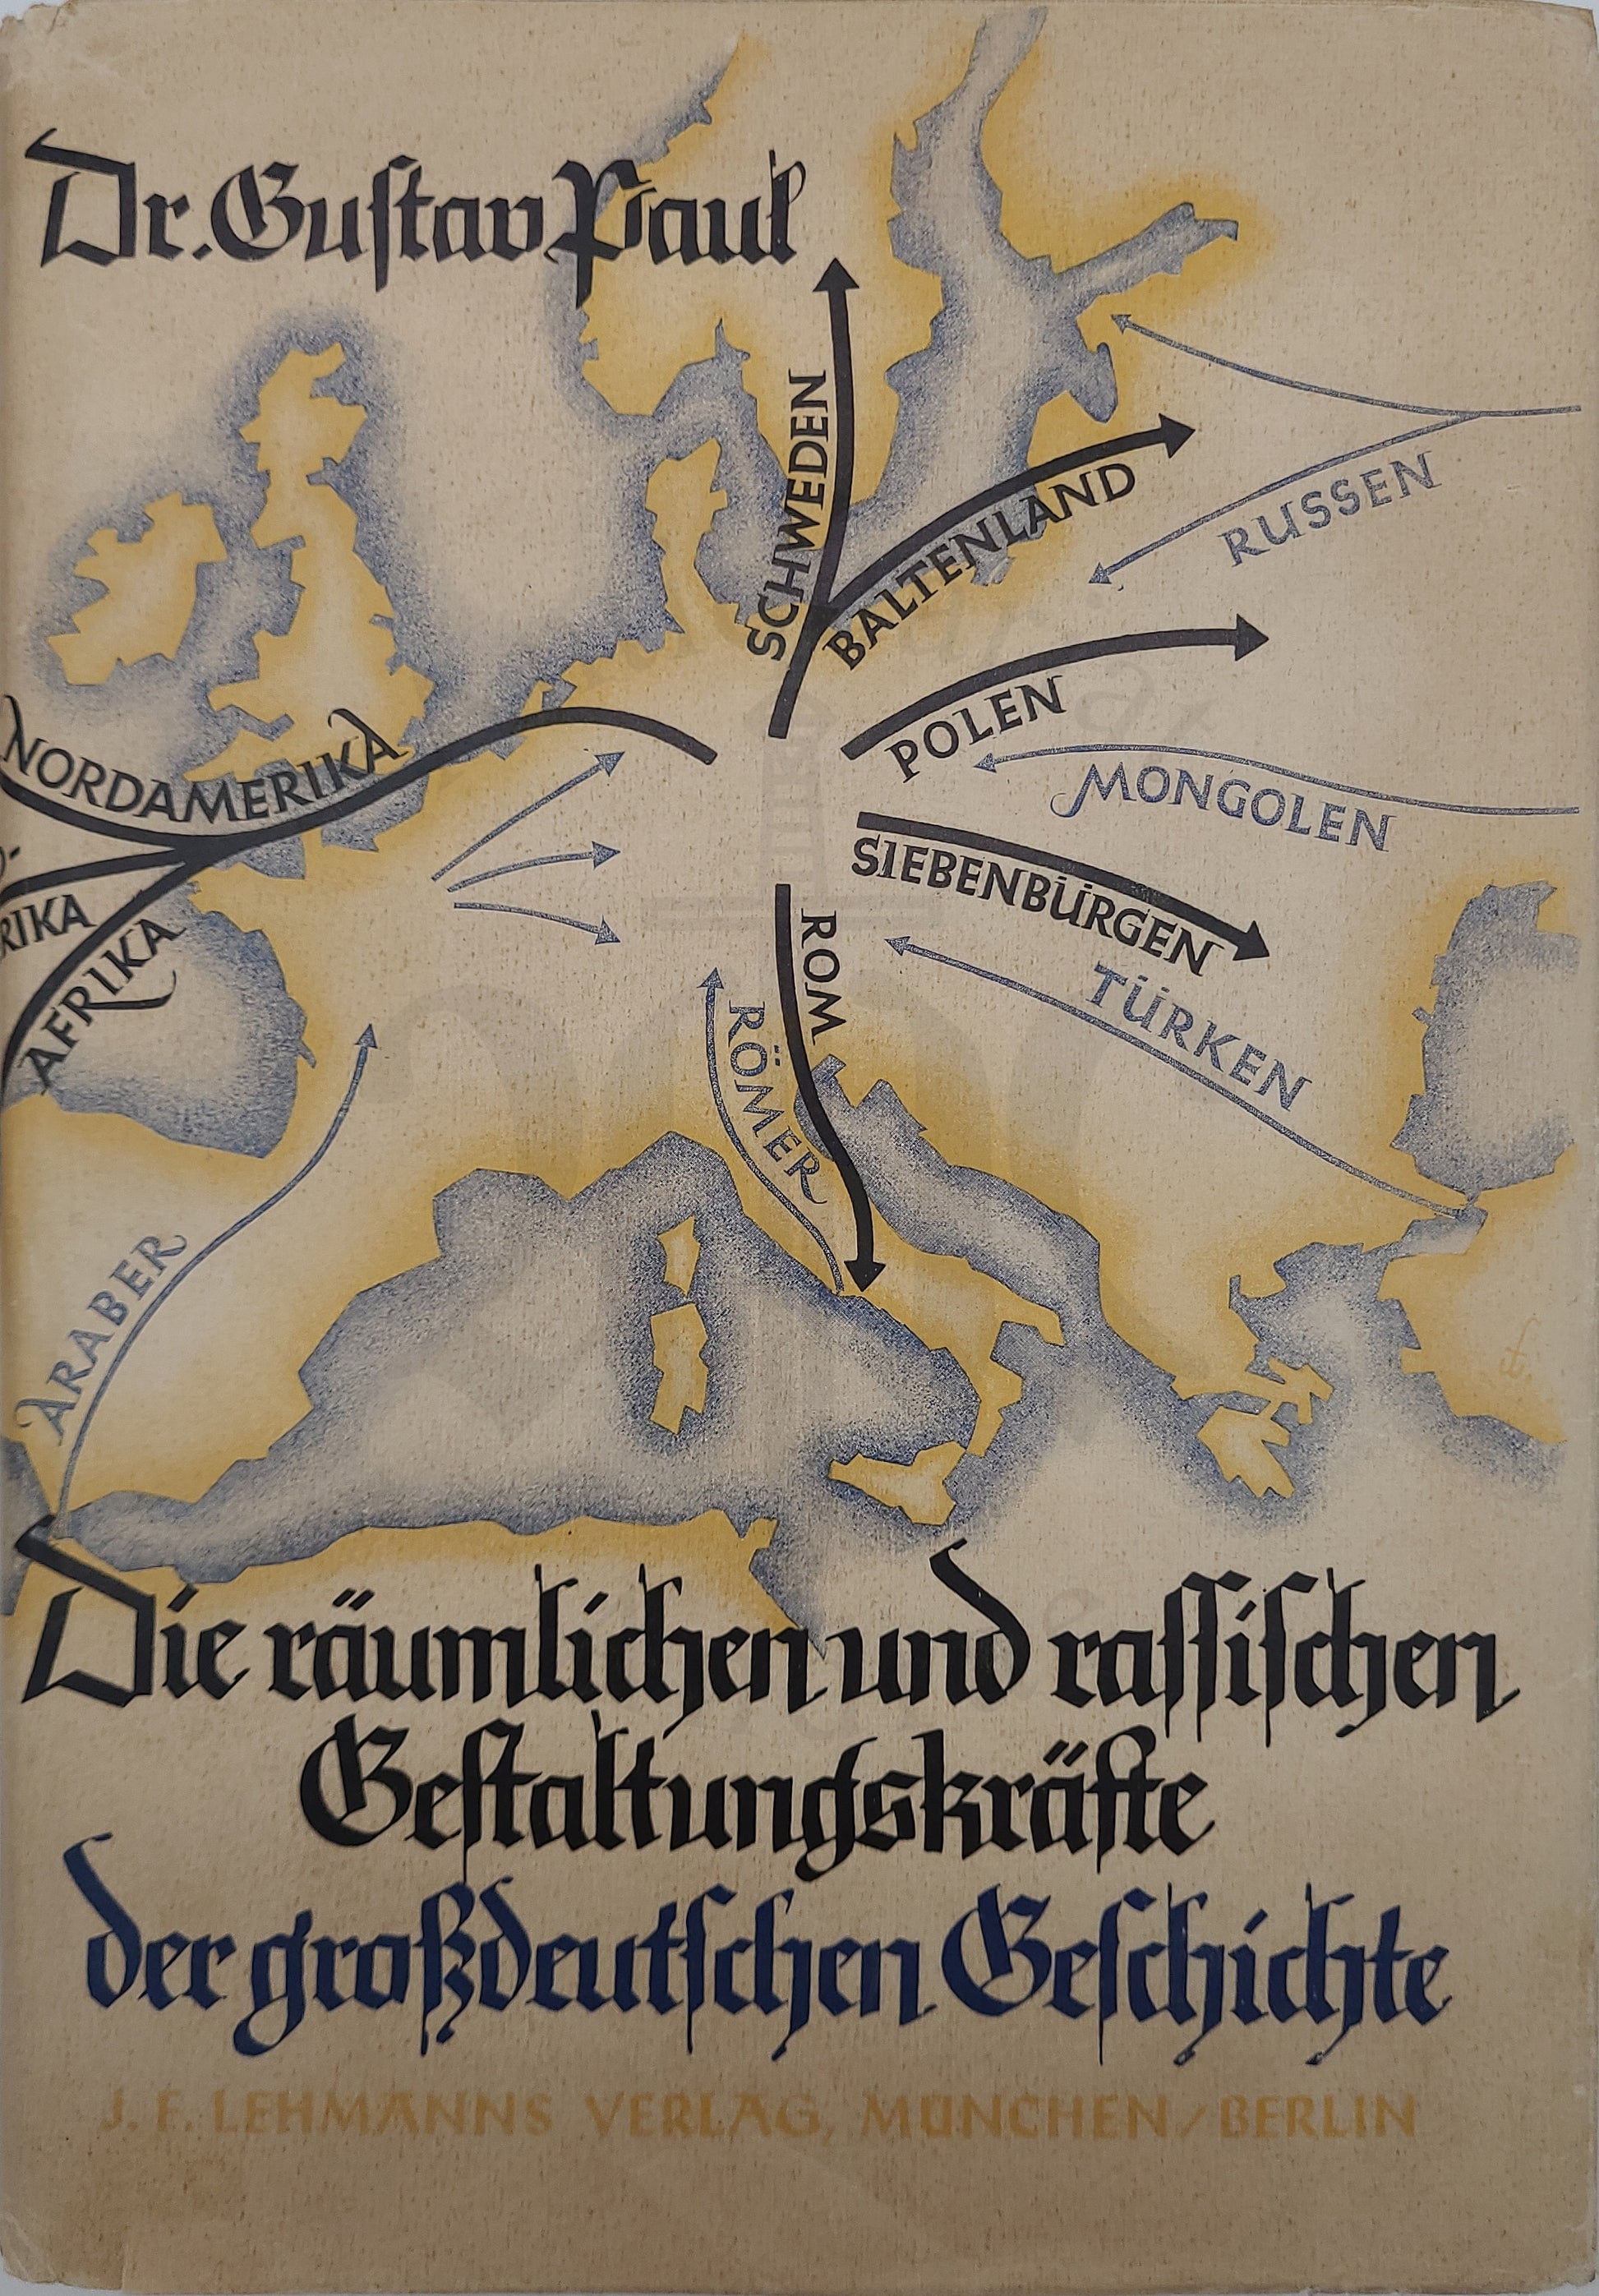 Dr. Gustav Paul
SCHWEDEN
BALTENLAND
RUSSEN
POLEN
MONGOLEN
NORDAMERIKA
RIKA
AFRIKA
SIEBENBÜRGEN
ROM
RÖMER
TÜRKEN
ARABER
Die räumlichen und rassischen
Gestaltungskräfte
der großdeutschen Geschichte
J. F. LEHMANNS VERLAG, MÜNCHEN / BERLIN